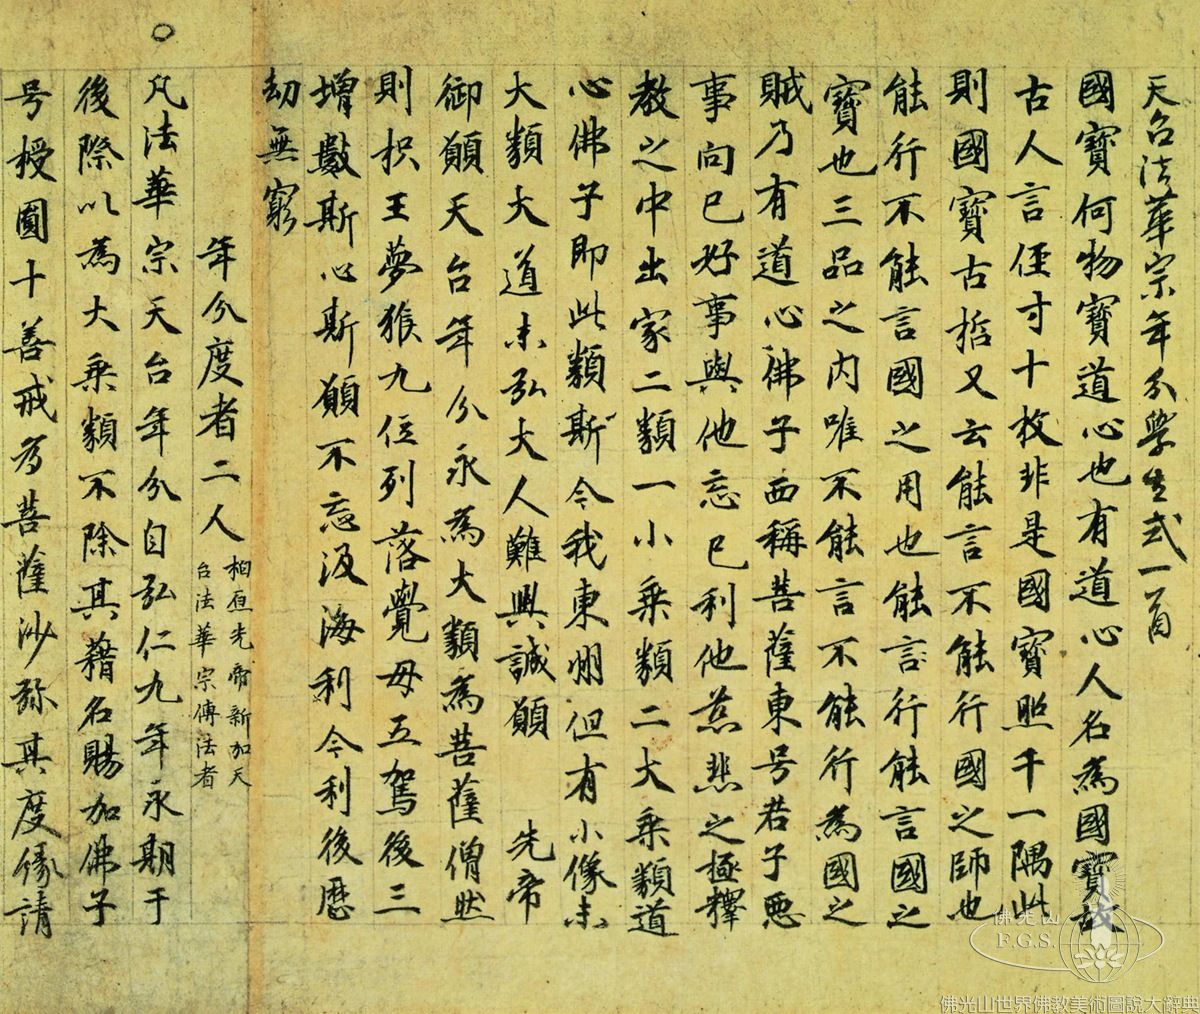 天台法華宗年分學生式一首
國寶何物寶道心也有道心人名為國寶故
古人言徑寸十枚非是國寶照千一隅此
則國寶古哲又云能言不能行國之師也
能行不能言國之用也能言行能言國之
寶也三品之內唯不能言不能行為國之
賊乃有道心佛子西稱菩薩東号君子惡
事向己好事與他忘己利他慈悲之極釋
教之中出家二類一小乘類二大乘類道
心佛子即此類斯今我東州但有小像未
大類大道未弘大人難興誠願 先帝
御願天台年分永為大類為菩薩僧然
則枳王夢猴九位列落覺母五駕後三
增數斯心斯願不忘汲海利今利後歷
劫無窮
年分度者二人 柏原先帝新加天
台法華宗傳法者
凡法華宗天台年分自弘仁九年永期于
後際以為大乘類不除其籍名賜加佛子
号授圓十善戒為菩薩沙弥其度緣請
佛光山
F.G.S.
佛光山世界佛教美術圖說大辭典